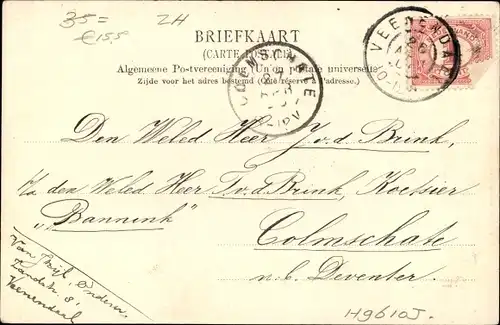 35=
€15.5
ZH
BRIEFKAART
(CARTE POSTALE)
Algemeene Postvereeniging (Union postale universelle)
Zijde voor het adres bestemd (Côté réservé à l'adresse.)
VEENENDAAL
COLMSCHATE
Den Weled Heer J. v. d. Brink,
p/a den Weled. Heer T. v. d. Brink, Koetsier
„Bannink"
Colmschate
n.b. Deventer.
Veenendaal
H9610J.